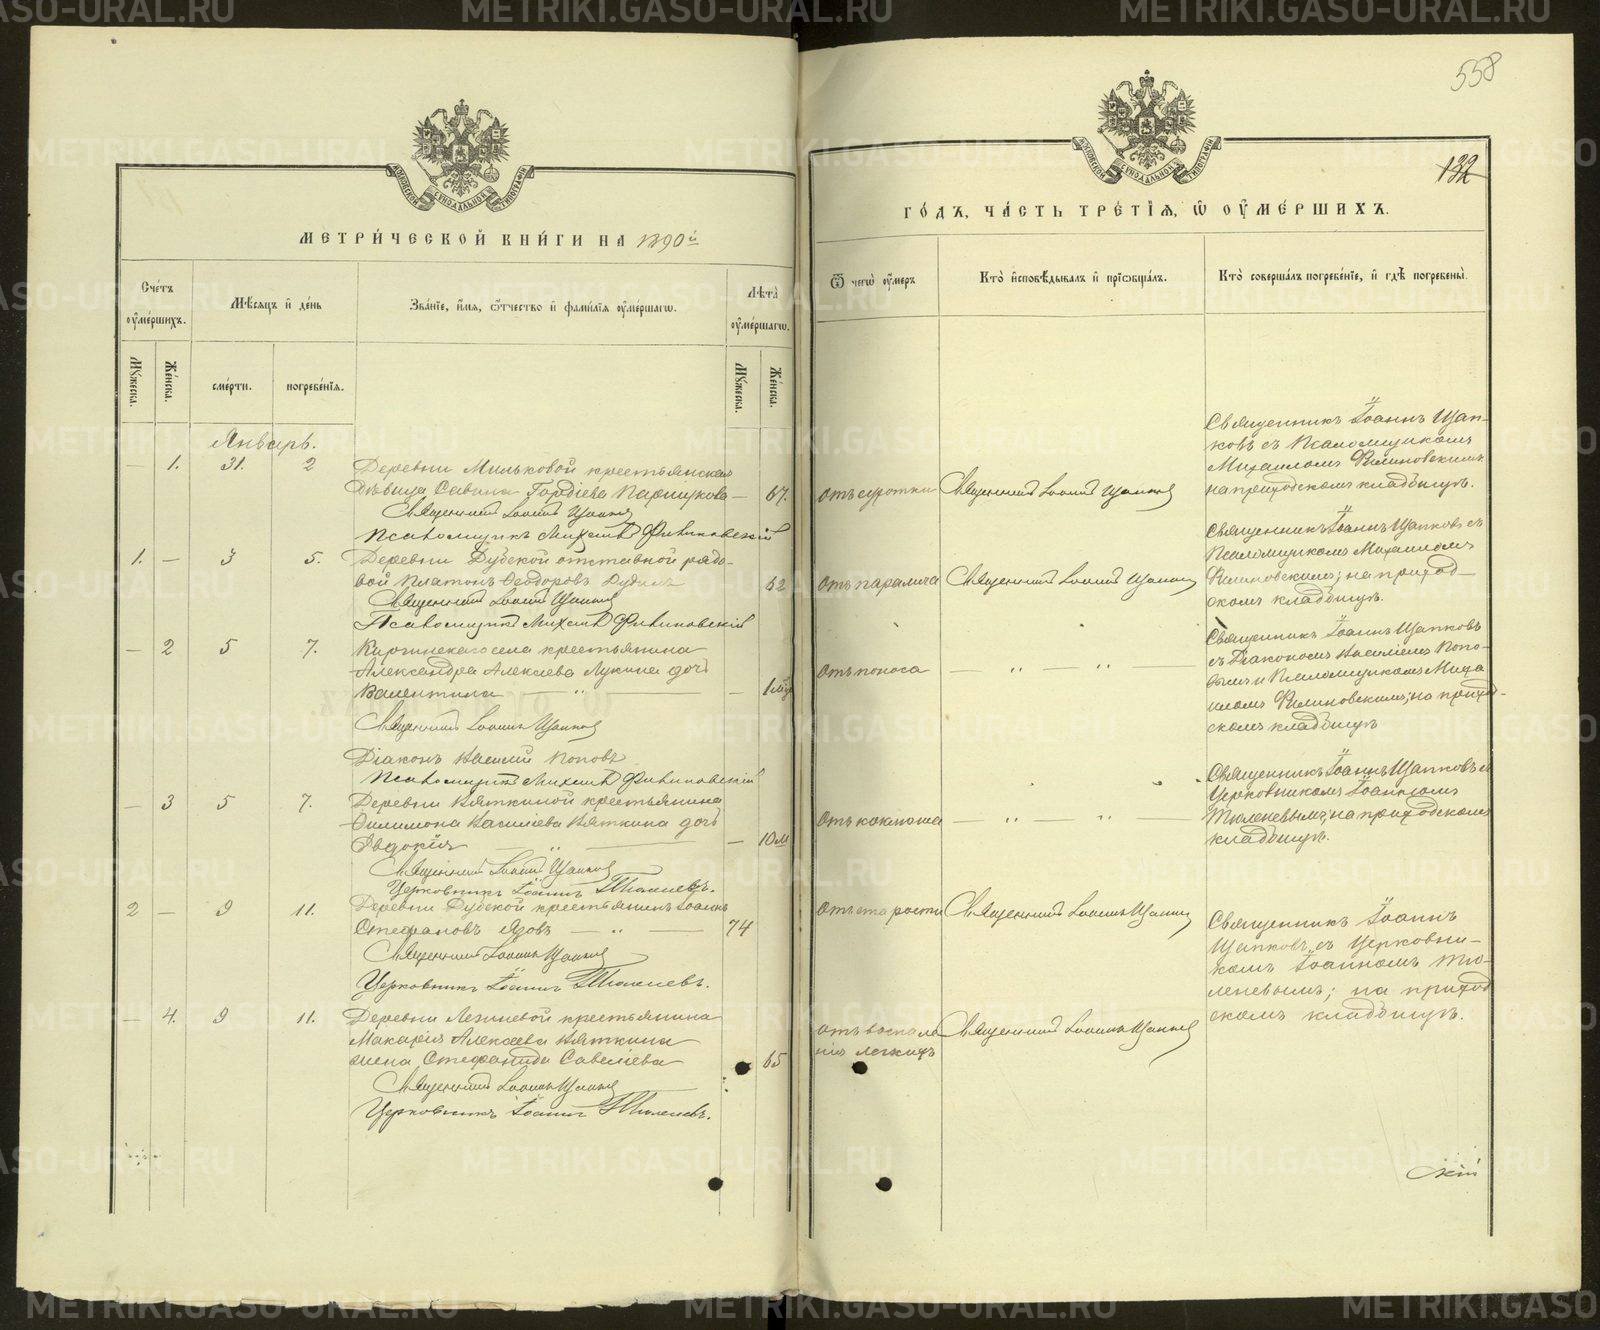 558
132
МЕТРИ́ЧЕСКОЙ КНИ́ГИ НА 1890й
ГО́ДЪ, ЧА́СТЬ ТРЕ́ТІѦ, Ѡ ОУ҆МЕ́РШИХЪ.
Сче́тъ оу҆ме́ршихъ.
Мѣ́сяцъ и҆ де́нь
Зва́нїе, и҆́мя, ѻ҆́тчество и҆ фами́лїя оу҆ме́ршагѡ.
Лѣ́та оу҆ме́ршагѡ.
Му́жеска.
Же́нска.
сме́рти.
погребе́нїя.
Му́жеска.
Же́нска.
Ѿ чегѡ̀ оу҆́меръ
Кто̀ и҆сповѣ́дывалъ и҆ прїѡбща́лъ.
Кто̀ соверша́лъ погребе́нїе, и҆ гдѣ̀ погребены̀.
Январь.
— 1. 31. 2
Деревни Миньковой крестьянская
дѣвица Савина Гордіева Паршукова — 67.
Священникъ Іоаннъ Цапковъ
Псаломщикъ Михаилъ Филиновскій
отъ сухотки
Священникъ Іоаннъ Цапковъ
Священникъ Іоаннъ Цап-
ковъ съ Псаломщикомъ
Михаиломъ Филиновскимъ
на приходскомъ кладбищѣ.
1. — 3 5.
Деревни Дубской отставной рядо-
вой Платонъ Ѳеодоровъ Дудинъ 62
Священникъ Іоаннъ Цапковъ
Псаломщикъ Михаилъ Филиновскій
отъ паралича
Священникъ Іоаннъ Цапковъ
Священникъ Іоаннъ Цапковъ съ
Псаломщикомъ Михаиломъ
Филиновскимъ; на приход-
скомъ кладбищѣ.
— 2 5 7.
Киргинскаго села крестьянина
Александра Алексѣева Лукина дочь
Валентина — „ — — 1
Священникъ Іоаннъ Цапковъ
Діаконъ Василій Поповъ
Псаломщикъ Михаилъ Филиновскій
отъ поноса
— „ — „ —
Священникъ Іоаннъ Цапковъ
съ Діакономъ Василіемъ Попо-
вымъ и Псаломщикомъ Миха
иломъ Филиновскимъ; на приход-
скомъ кладбищѣ
— 3 5 7.
Деревни Вяткиной крестьянина
Филимона Василіева Вяткина дочь
Евдокія — „ — — 10 м
Священникъ Іоаннъ Цапковъ
Церковникъ Іоаннъ Тюленевъ.
отъ коклюша
— „ — „ —
Священникъ Іоаннъ Цапковъ съ
Церковникомъ Іоанномъ
Тюленевымъ; на приходскомъ
кладбищѣ.
2 — 9 11.
Деревни Дубской крестьянинъ Іоаннъ
Стефановъ Язовъ — „ — 74
Священникъ Іоаннъ Цапковъ
Церковникъ Іоаннъ Тюленевъ.
отъ старости
Священникъ Іоаннъ Цапковъ
Священникъ Іоаннъ
Цапковъ съ Церковни-
комъ Іоанномъ Тю-
леневымъ; на приход
скомъ кладбищѣ.
— 4. 9 11.
Деревни Лезиневой крестьянина
Макарія Алексѣева Вяткина
жена Стефанида Савеліева 65
Священникъ Іоаннъ Цапковъ
Церковникъ Іоаннъ Тюленевъ.
отъ воспале
нія легкихъ
Священникъ Іоаннъ Цапковъ